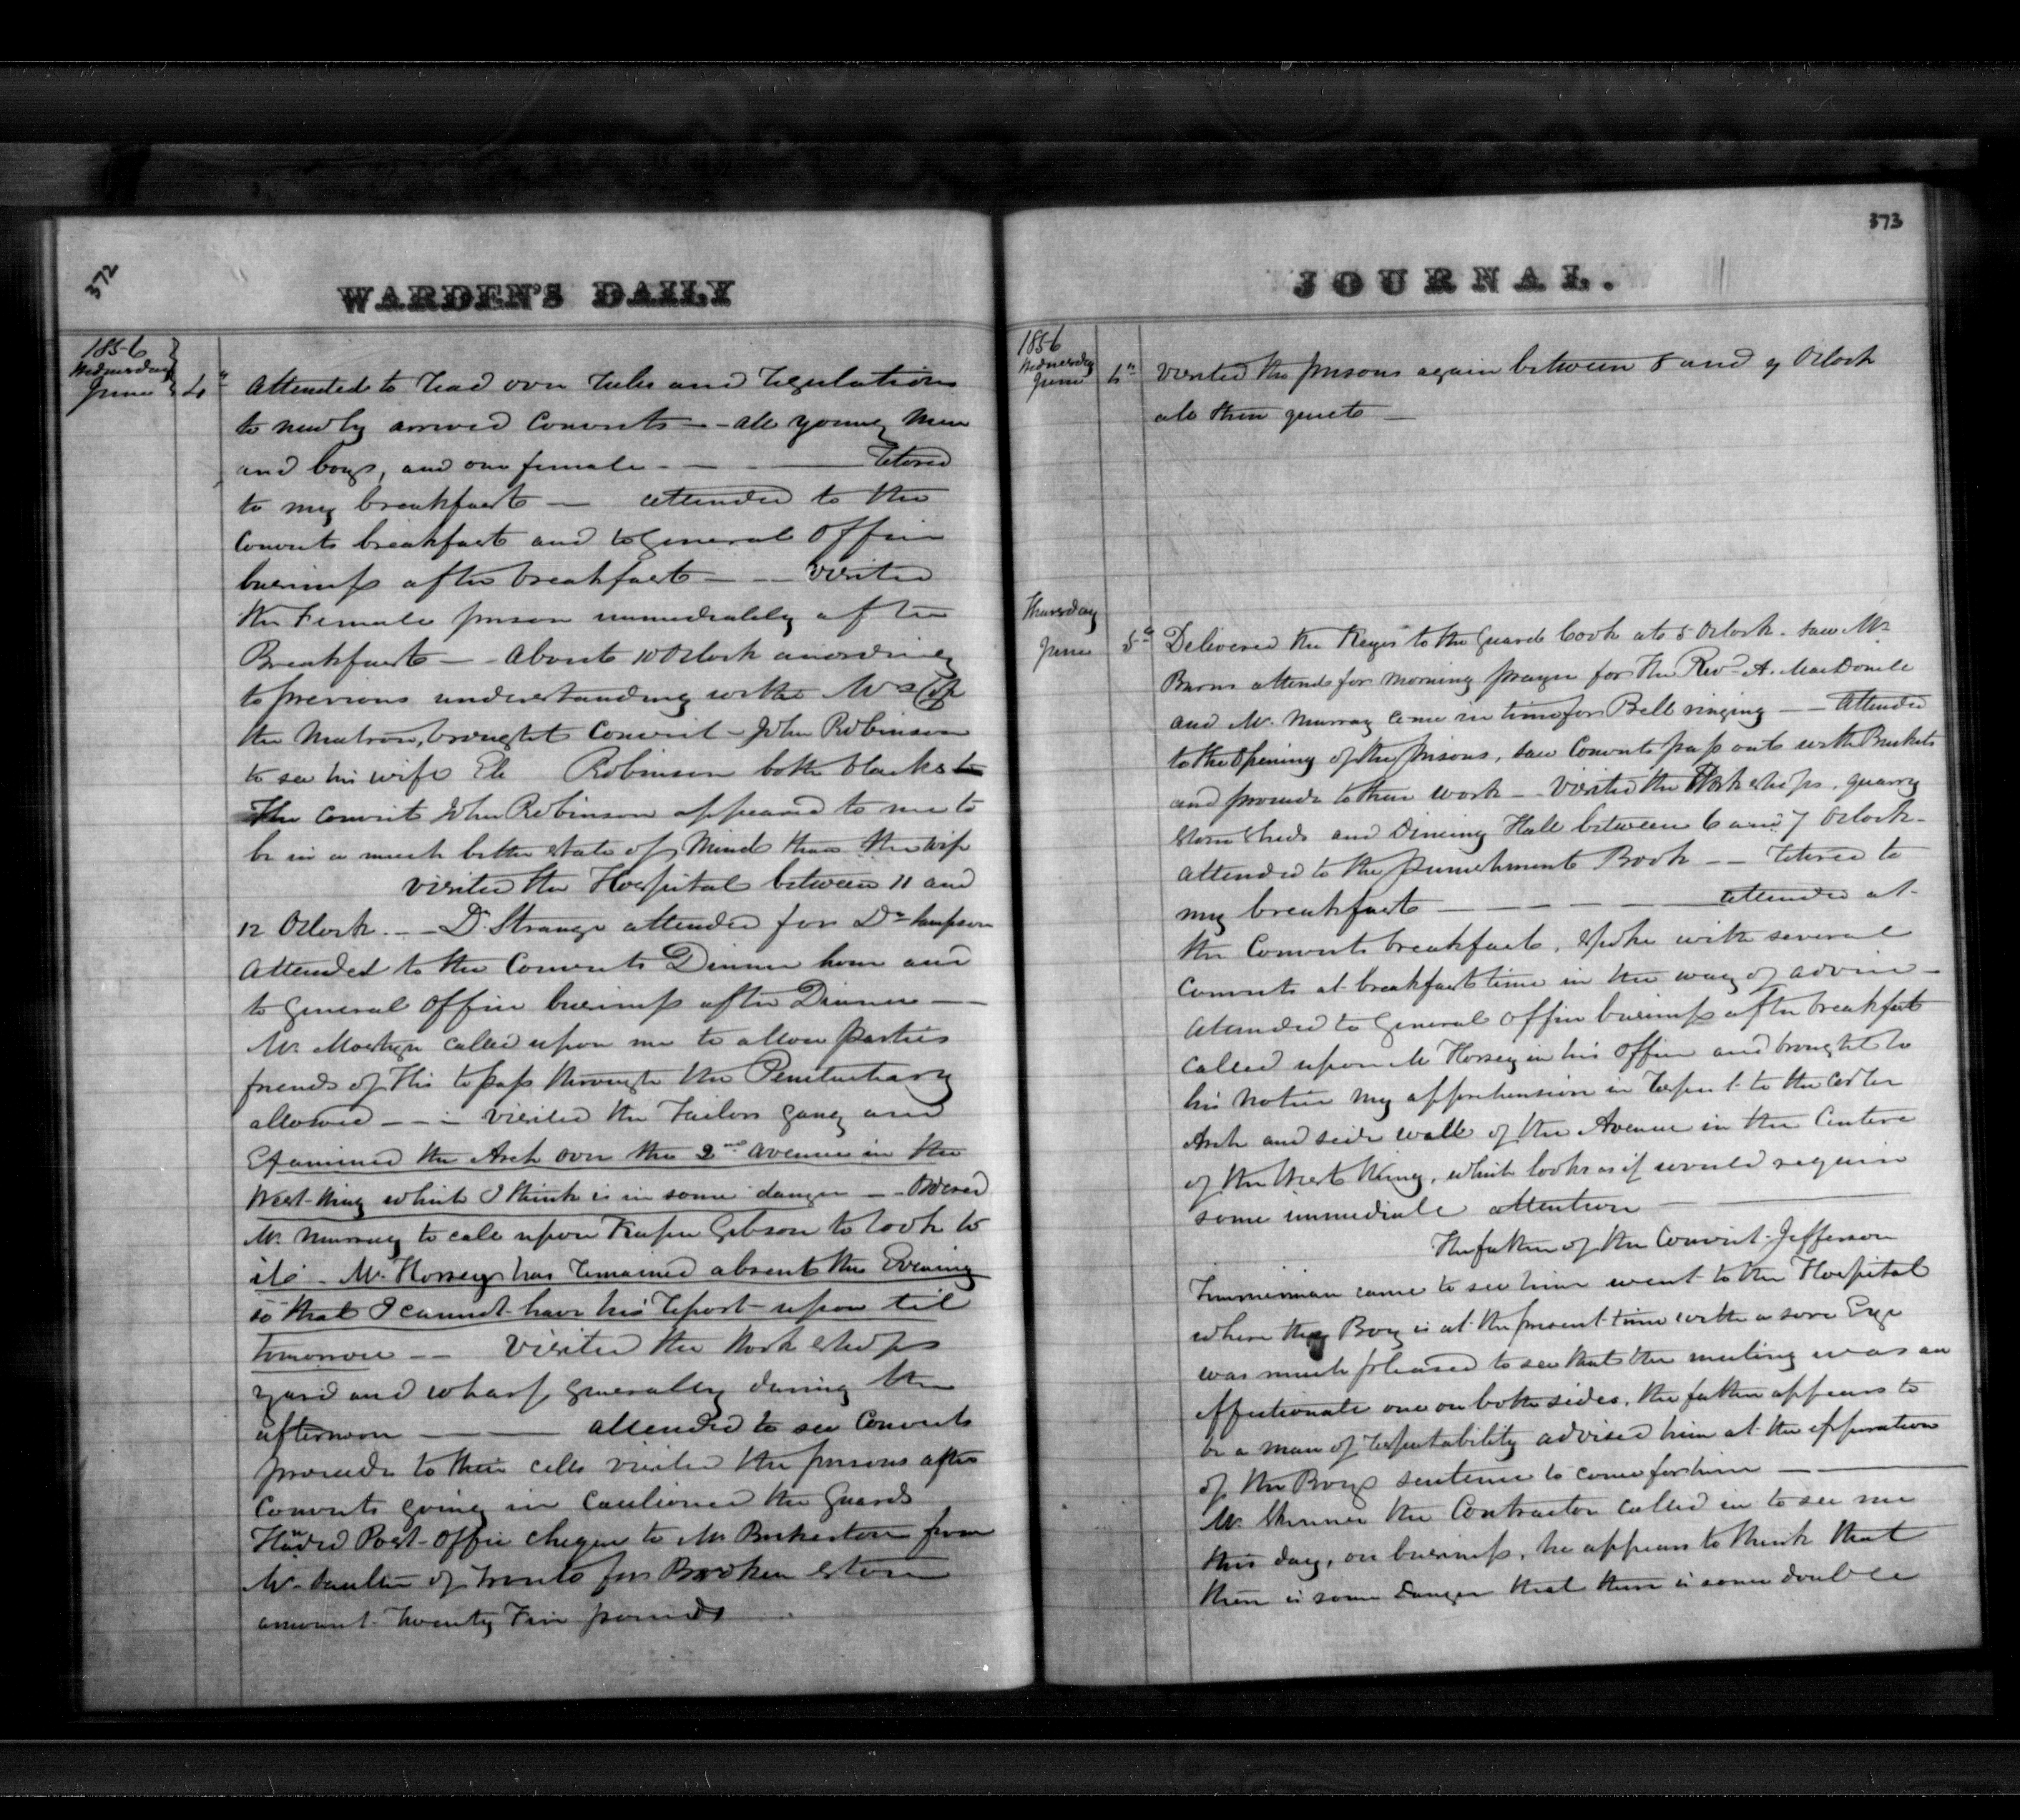 372
WARDEN'S DAILY
1856
Wednesday
June 4th
Attended to read over rules and regulations
to newly arrived Convicts — all young men
and boys, and one female — — — retired
to my breakfast — attended to the
Convicts breakfast and to general office
business after breakfast — — visited
the Female prison immediately after
Breakfast — About 10 Oclock according
to previous understanding with Mrs
the Matron, brought Convict John Robinson
to see his wife Robinson both blacks
The Convict John Robinson appeared to me to
be in a much better state of mind than the wife
visited the Hospital between 11 and
12 Oclock — Dr. Strange attended for Dr Sampson
Attended to the Convicts Dinner hour and
to general office business after Dinner —
Mr. called upon me to allow parties
friends of His to pass through the Penitentiary
allowed — — visited the Tailors gang and
Examined the Arch over the 2nd avenue in the
West Wing which I think is in some danger — Ordered
Mr. Murray to call upon Keeper Gibson to look to
it — Mr. Horsey has remained absent this Evening
so that I cannot have his report upon til
tomorrow — — Visited the Work shops
yard and wharf generally during the
afternoon — — attended to see Convicts
proceed to their cells visited the prisons after
Convicts going in Cautioned the Guards
Handed Post-Office cheque to Mr Bickerton from
Mr. of Toronto for Broken stone
amount Twenty Five pounds
373
JOURNAL.
1856
Wednesday
June 4th
Visited the prisons again between 8 and 9 Oclock
all then quiet —
Thursday
June 5th
Delivered the Keys to the Guard Cook at 5 Oclock. saw Mr
Burns attend for morning prayer for the Revd A. MacDonell
and Mr. Murray come in time for Bell ringing — — Attended
to the opening of the prisons, saw Convicts pass out with Buckets
and proceed to their work — Visited the Work shops, quarry
stone sheds and Dining Hall between 6 and 7 Oclock —
Attended to the punishment Book — — retired to
my breakfast — — — — attended at
the Convicts breakfast, spoke with several
Convicts at breakfast time in the way of advice —
Attended to General Office business after breakfast
called upon Mr Horsey in his office and brought to
his notice my apprehension in respect to the
Arch and side wall of the Avenue in the Centre
of the West Wing, which looks as if would require
some immediate attention —
The father of the Convict Jefferson
Timmerman came to see him went to the Hospital
where the Boy is at the present time with a sore Eye
was much pleased to see that the meeting was an
affectionate one on both sides, the father appears to
be a man of respectability advised him at the expiration
of the Boys sentence to come for him —
Mr. Skinner the Contractor called in to see me
this day, on business, he appears to think that
there is some danger that there is some double